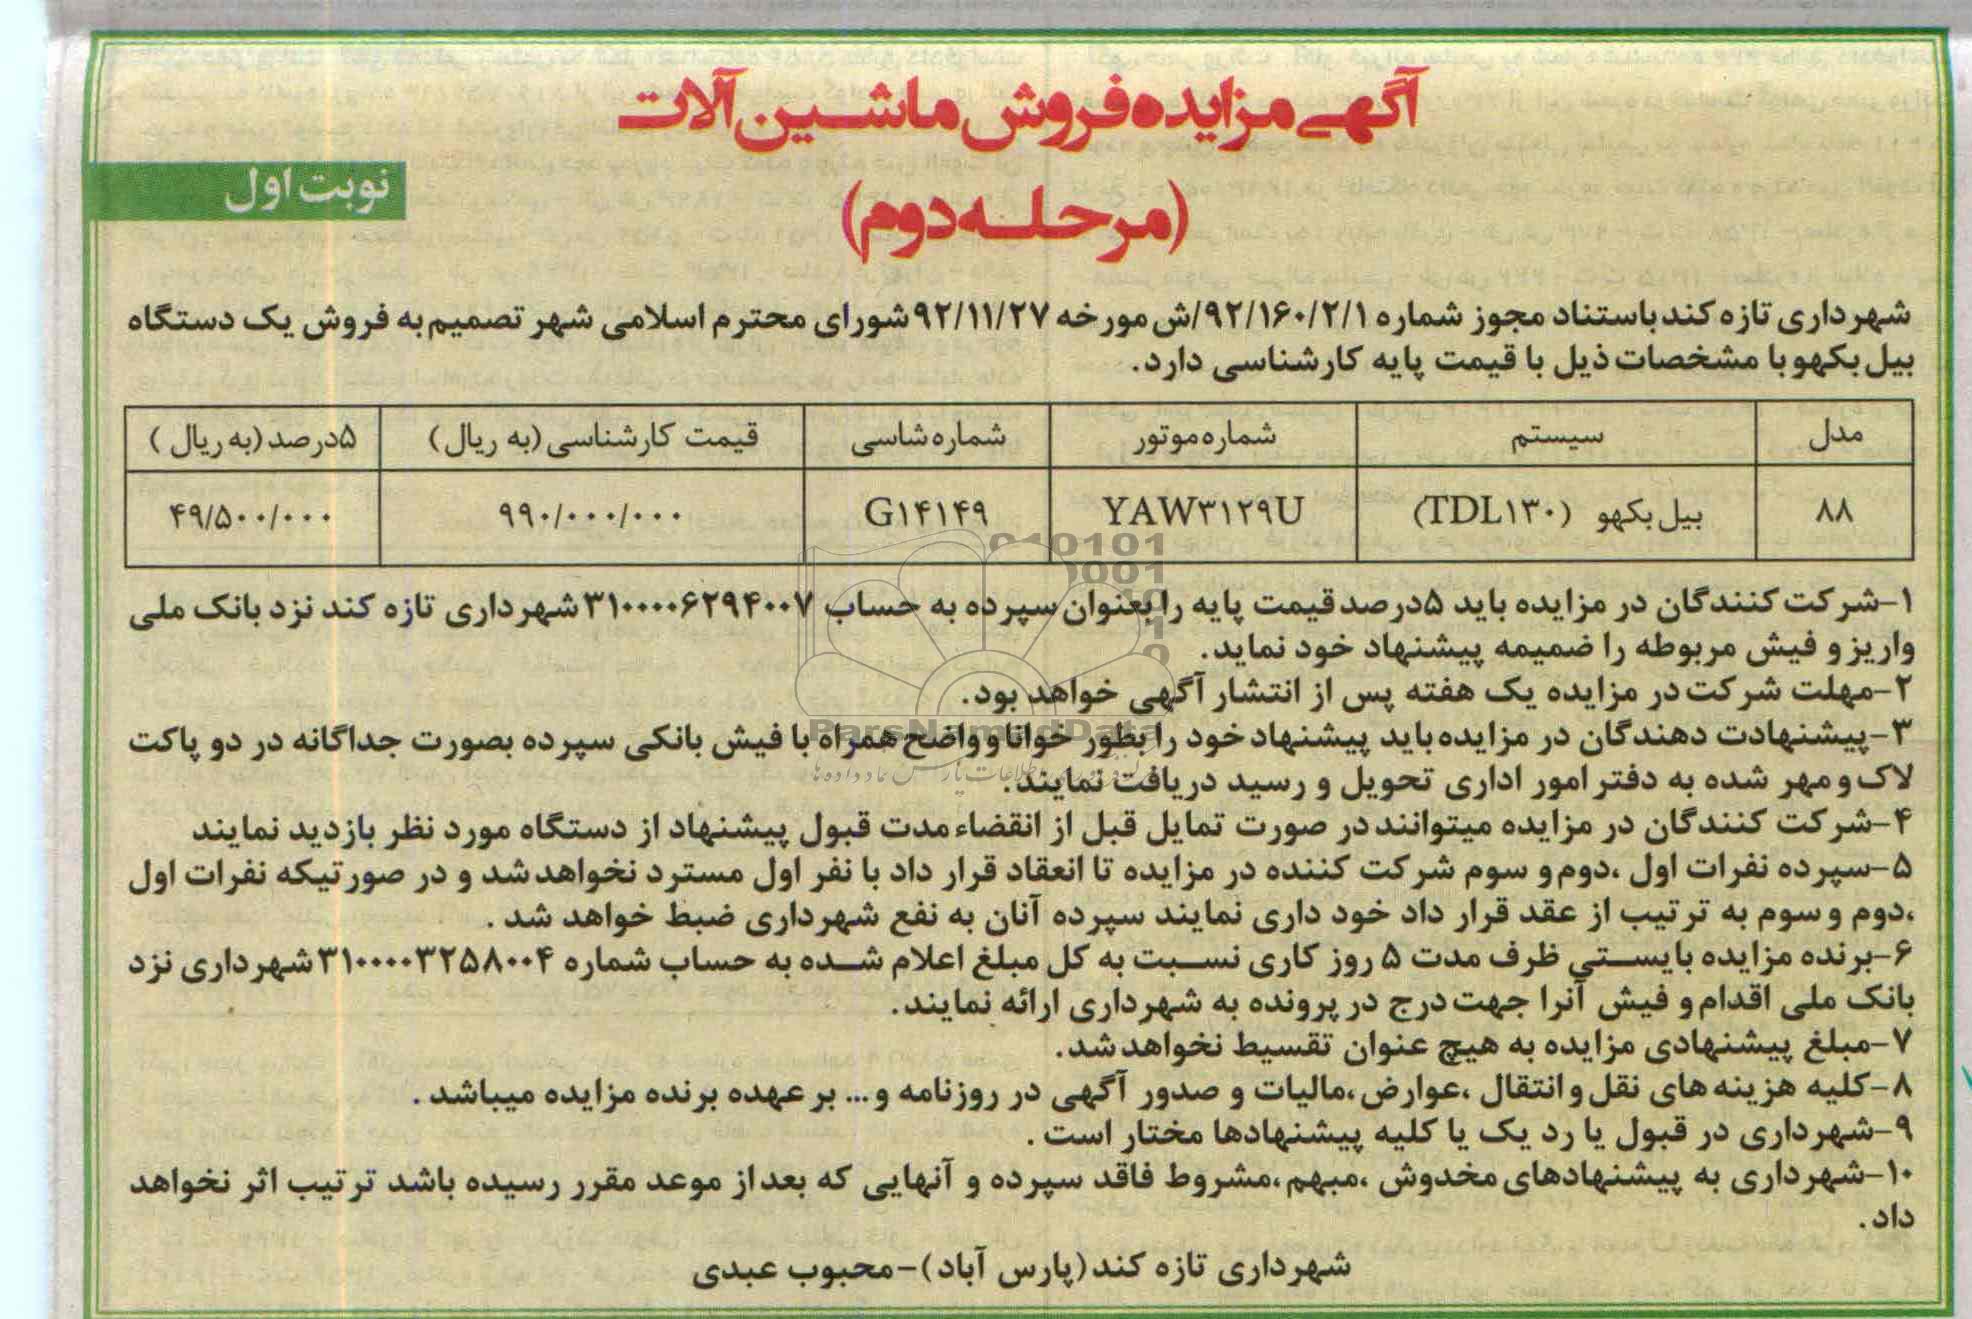 آگهی مزایده فروش ماشین آلات
(مرحله دوم)
نوبت اول
شهرداری تازه کند باستناد مجوز شماره ۹۲/۱۶۰/۲/۱/ش مورخه ۹۲/۱۱/۲۷ شورای محترم اسلامی شهر تصمیم به فروش یک دستگاه
بیل بکهو با مشخصات ذیل با قیمت پایه کارشناسی دارد.
مدل سیستم شماره موتور شماره شاسی قیمت کارشناسی (به ریال) ۵درصد (به ریال )
۸۸ بیل بکهو (TDL۱۳۰) YAW۳۱۲۹U G۱۴۱۴۹ ۹۹۰/۰۰۰/۰۰۰ ۴۹/۵۰۰/۰۰۰
۱-شرکت کنندگان در مزایده باید ۵درصد قیمت پایه را بعنوان سپرده به حساب ۳۱۰۰۰۰۶۲۹۴۰۰۷ شهرداری تازه کند نزد بانک ملی
واریز و فیش مربوطه را ضمیمه پیشنهاد خود نماید.
۲-مهلت شرکت در مزایده یک هفته پس از انتشار آگهی خواهد بود.
۳-پیشنهادت دهندگان در مزایده باید پیشنهاد خود را بطور خوانا و واضح همراه با فیش بانکی سپرده بصورت جداگانه در دو پاکت
لاک و مهر شده به دفتر امور اداری تحویل و رسید دریافت نمایند.
۴-شرکت کنندگان در مزایده میتوانند در صورت تمایل قبل از انقضاء مدت قبول پیشنهاد از دستگاه مورد نظر بازدید نمایند
۵-سپرده نفرات اول ،دوم و سوم شرکت کننده در مزایده تا انعقاد قرار داد با نفر اول مسترد نخواهد شد و در صورتیکه نفرات اول
،دوم و سوم به ترتیب از عقد قرار داد خود داری نمایند سپرده آنان به نفع شهرداری ضبط خواهد شد .
۶-برنده مزایده بایستی ظرف مدت ۵ روز کاری نسبت به کل مبلغ اعلام شده به حساب شماره ۳۱۰۰۰۰۳۲۵۸۰۰۴ شهرداری نزد
بانک ملی اقدام و فیش آنرا جهت درج در پرونده به شهرداری ارائه نمایند.
۷-مبلغ پیشنهادی مزایده به هیچ عنوان تقسیط نخواهد شد.
۸-کلیه هزینه های نقل و انتقال ،عوارض،مالیات و صدور آگهی در روزنامه و... بر عهده برنده مزایده میباشد .
۹-شهرداری در قبول یا رد یک یا کلیه پیشنهادها مختار است .
۱۰-شهرداری به پیشنهادهای مخدوش ،مبهم،مشروط فاقد سپرده و آنهایی که بعد از موعد مقرر رسیده باشد ترتیب اثر نخواهد
داد.
شهرداری تازه کند (پارس آباد)-محبوب عبدی